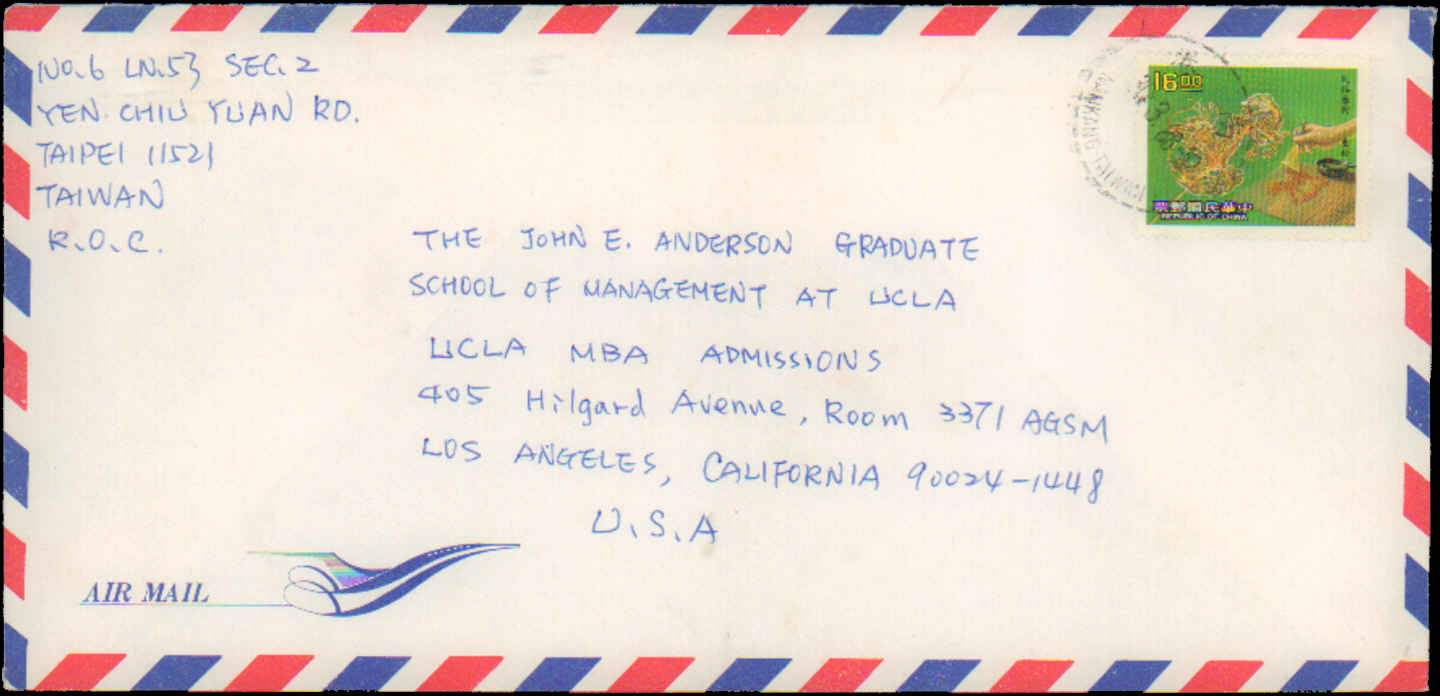 No. 6 LN. 53 SEC. 2
YEN CHIU YUAN RD.
TAIPEI 11521
TAIWAN
R.O.C.
16.00
中華民國郵票
REPUBLIC OF CHINA
NANKANG TAIWAN
THE JOHN E. ANDERSON GRADUATE
SCHOOL OF MANAGEMENT AT UCLA
UCLA MBA ADMISSIONS
405 Hilgard Avenue, Room 3371 AGSM
LOS ANGELES, CALIFORNIA 90024-1448
U.S.A
AIR MAIL